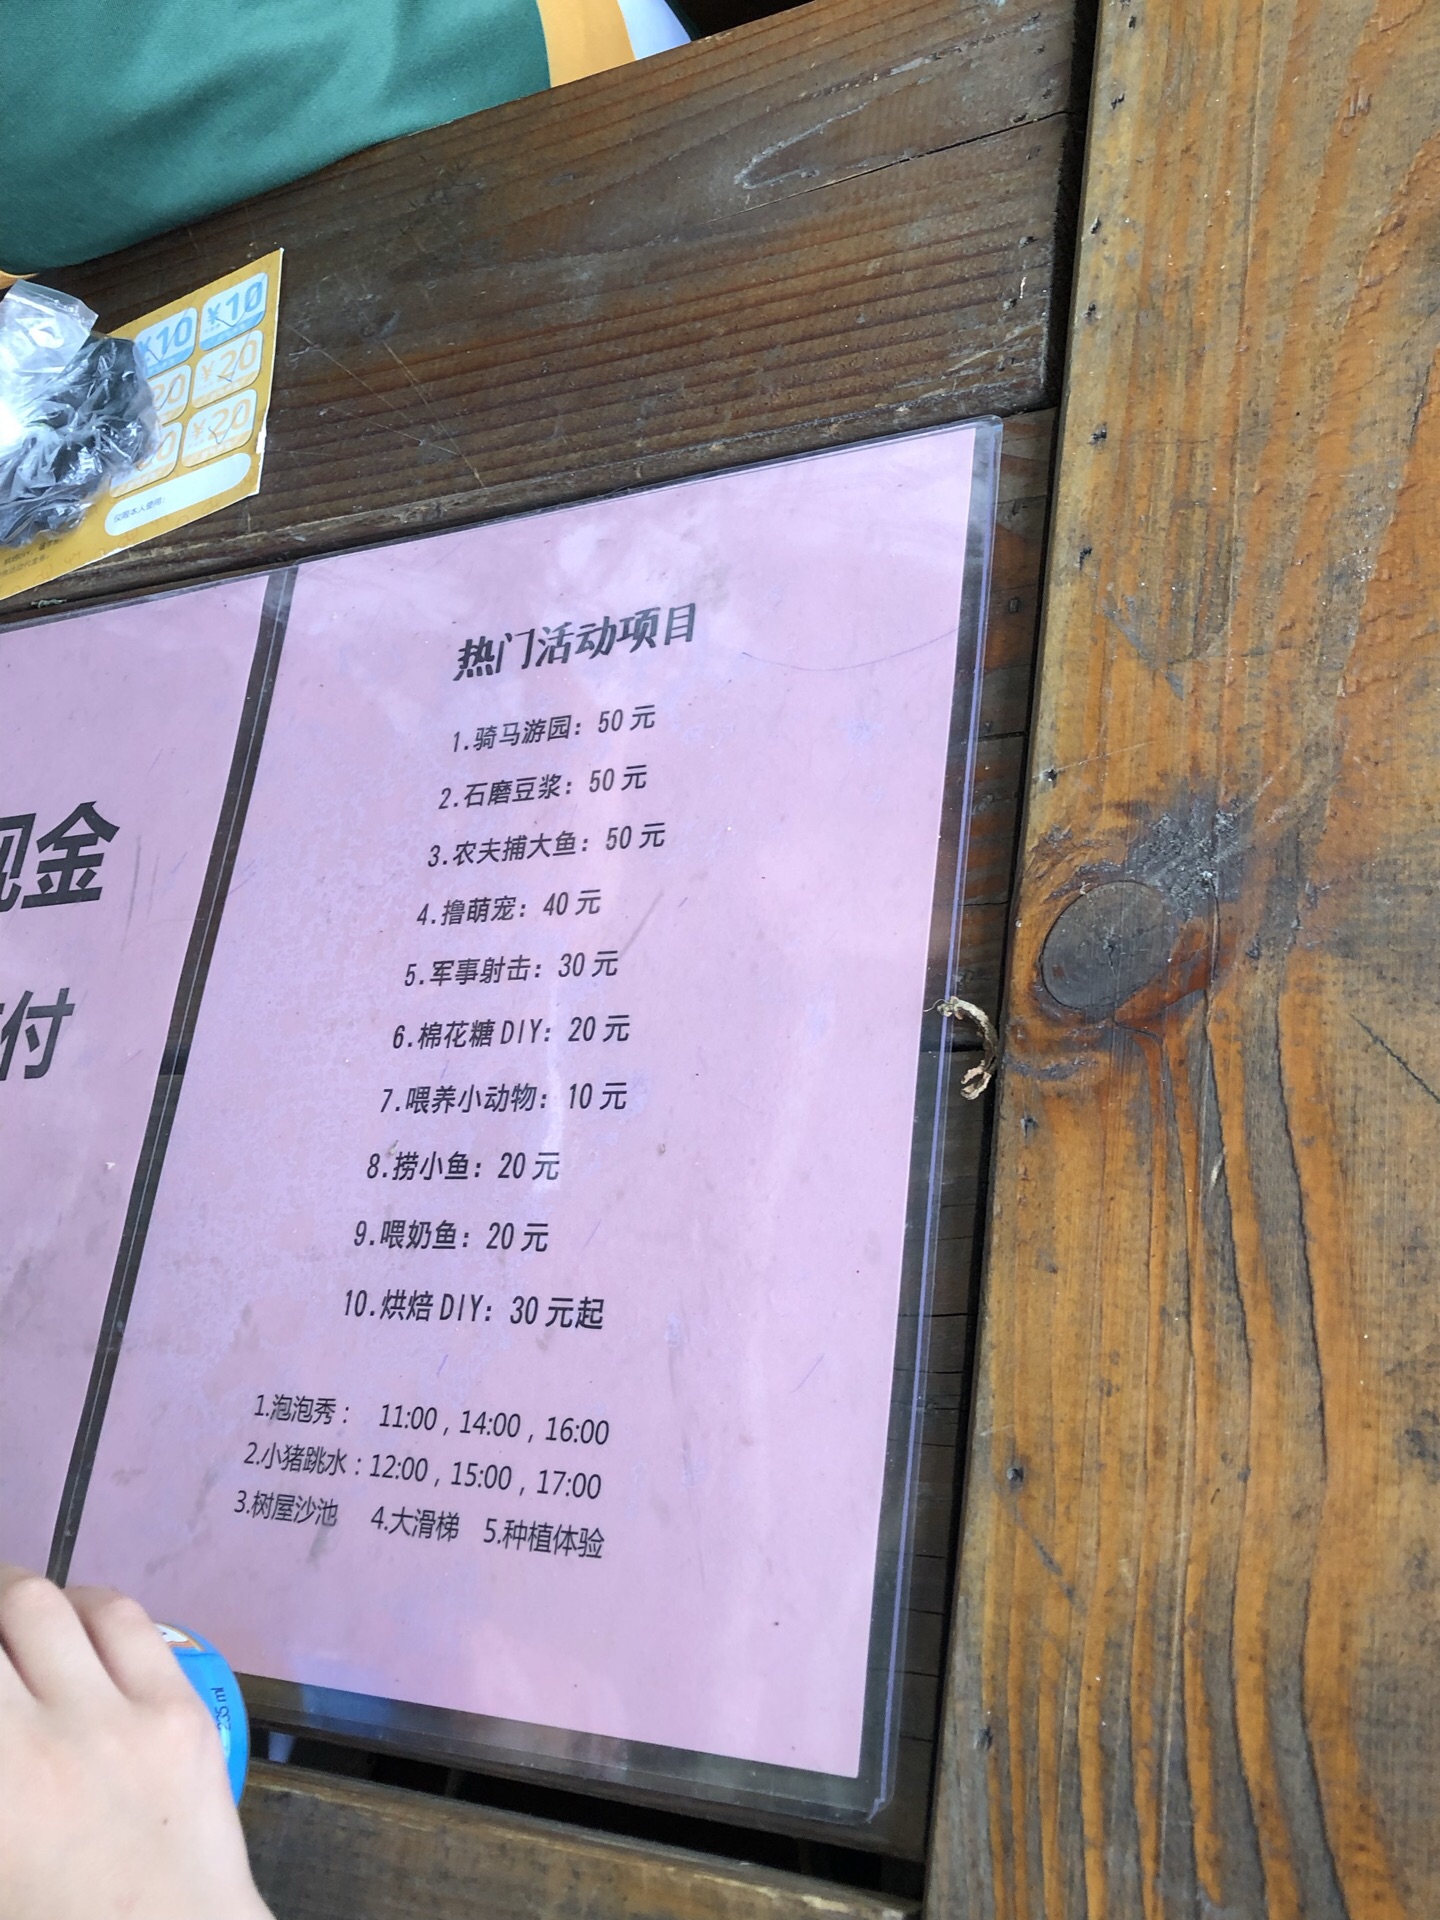 ¥10 ¥10
20 ¥20
¥20
仅限本人使用:
现金
付
热门活动项目
1.骑马游园：50元
2.石磨豆浆：50元
3.农夫捕大鱼：50元
4.撸萌宠：40元
5.军事射击：30元
6.棉花糖DIY：20元
7.喂养小动物：10元
8.捞小鱼：20元
9.喂奶鱼：20元
10.烘焙DIY：30元起
1.泡泡秀： 11:00，14:00，16:00
2.小猪跳水：12:00，15:00，17:00
3.树屋沙池 4.大滑梯 5.种植体验
235 ml